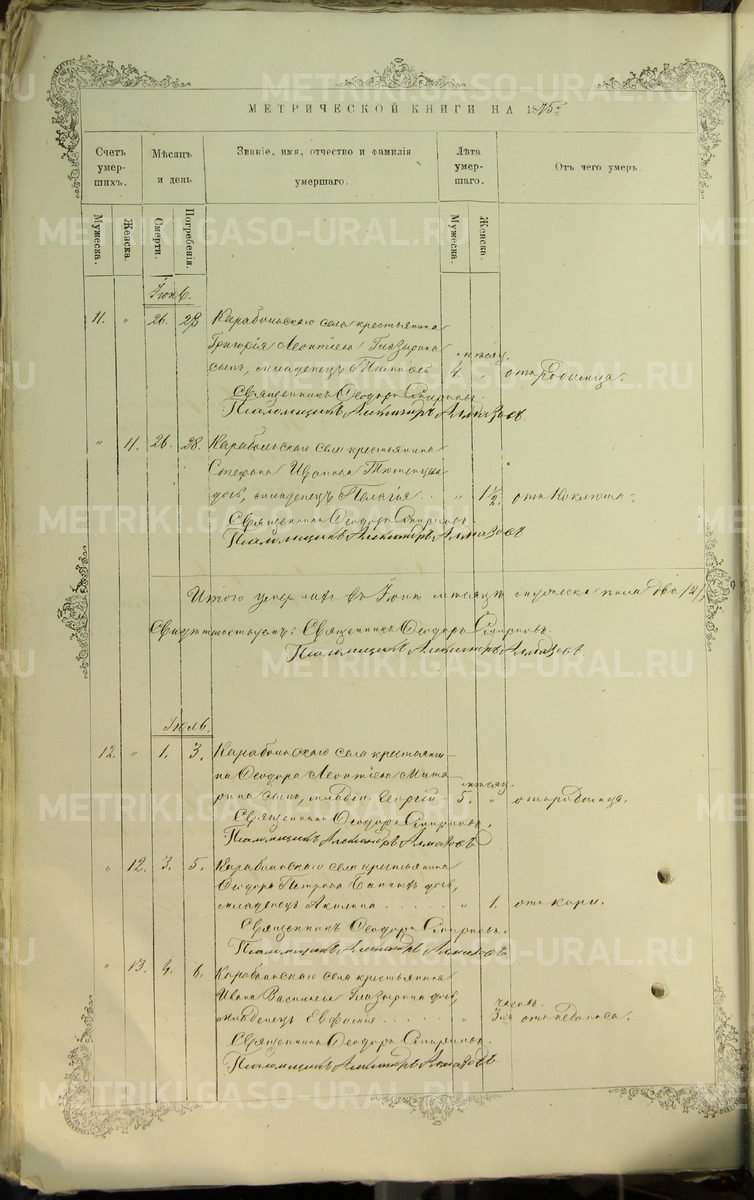 МЕТРИЧЕСКОЙ КНИГИ НА 1875
Счетъ умершихъ. Мѣсяцъ и день Званіе, имя, отчество и фамилія умершаго. Лѣта умершаго. Отъ чего умеръ.
Мужеска. Женска. Смерти. Погребенія. Мужеска. Женска.
Іюнь.
11. " 26. 28 Карабольскаго села крестьянина
Григорія Леонтіева Глазырина мѣсяц.
сынъ, младенецъ 4. " отъ родимца.
Священникъ Ѳеодоръ Смирновъ.
Псаломщикъ Александръ Алмазовъ.
" 11. 26. 28. Карабольскаго села крестьянина
Стефана Иванова
дочь, младенецъ Пелагія . . " 1½. отъ коклюша.
Священникъ Ѳеодоръ Смирновъ.
Псаломщикъ Александръ Алмазовъ
Итого умершихъ въ Іюнѣ мѣсяцѣ мужеска пола два /2/,
Свидѣтельствуемъ: Священникъ Ѳеодоръ Смирновъ.
Псаломщикъ Александръ Алмазовъ.
Іюль.
12. " 1. 3. Карабольскаго села крестьяни-
на Ѳеодора Леонтіева мѣсяц.
сынъ, младен. Георгій 5. " отъ родимца.
Священникъ Ѳеодоръ Смирновъ.
Псаломщикъ Александръ Алмазовъ
" 12. 3. 5. Карабольскаго села крестьянина
Ѳеодора Петрова дочь,
младенецъ Акилина . . . . . " 1. отъ кори.
Священникъ Ѳеодоръ Смирновъ.
Псаломщикъ Александръ Алмазовъ
" 13. 4. 6. Карабольскаго села крестьянина
Ивана Васильева Глазырина дочь, часовъ.
младенецъ Евфимія . . . . . " 3хъ отъ
Священникъ Ѳеодоръ Смирновъ.
Псаломщикъ Александръ Алмазовъ.
METRIKI.GASO-URAL.RU